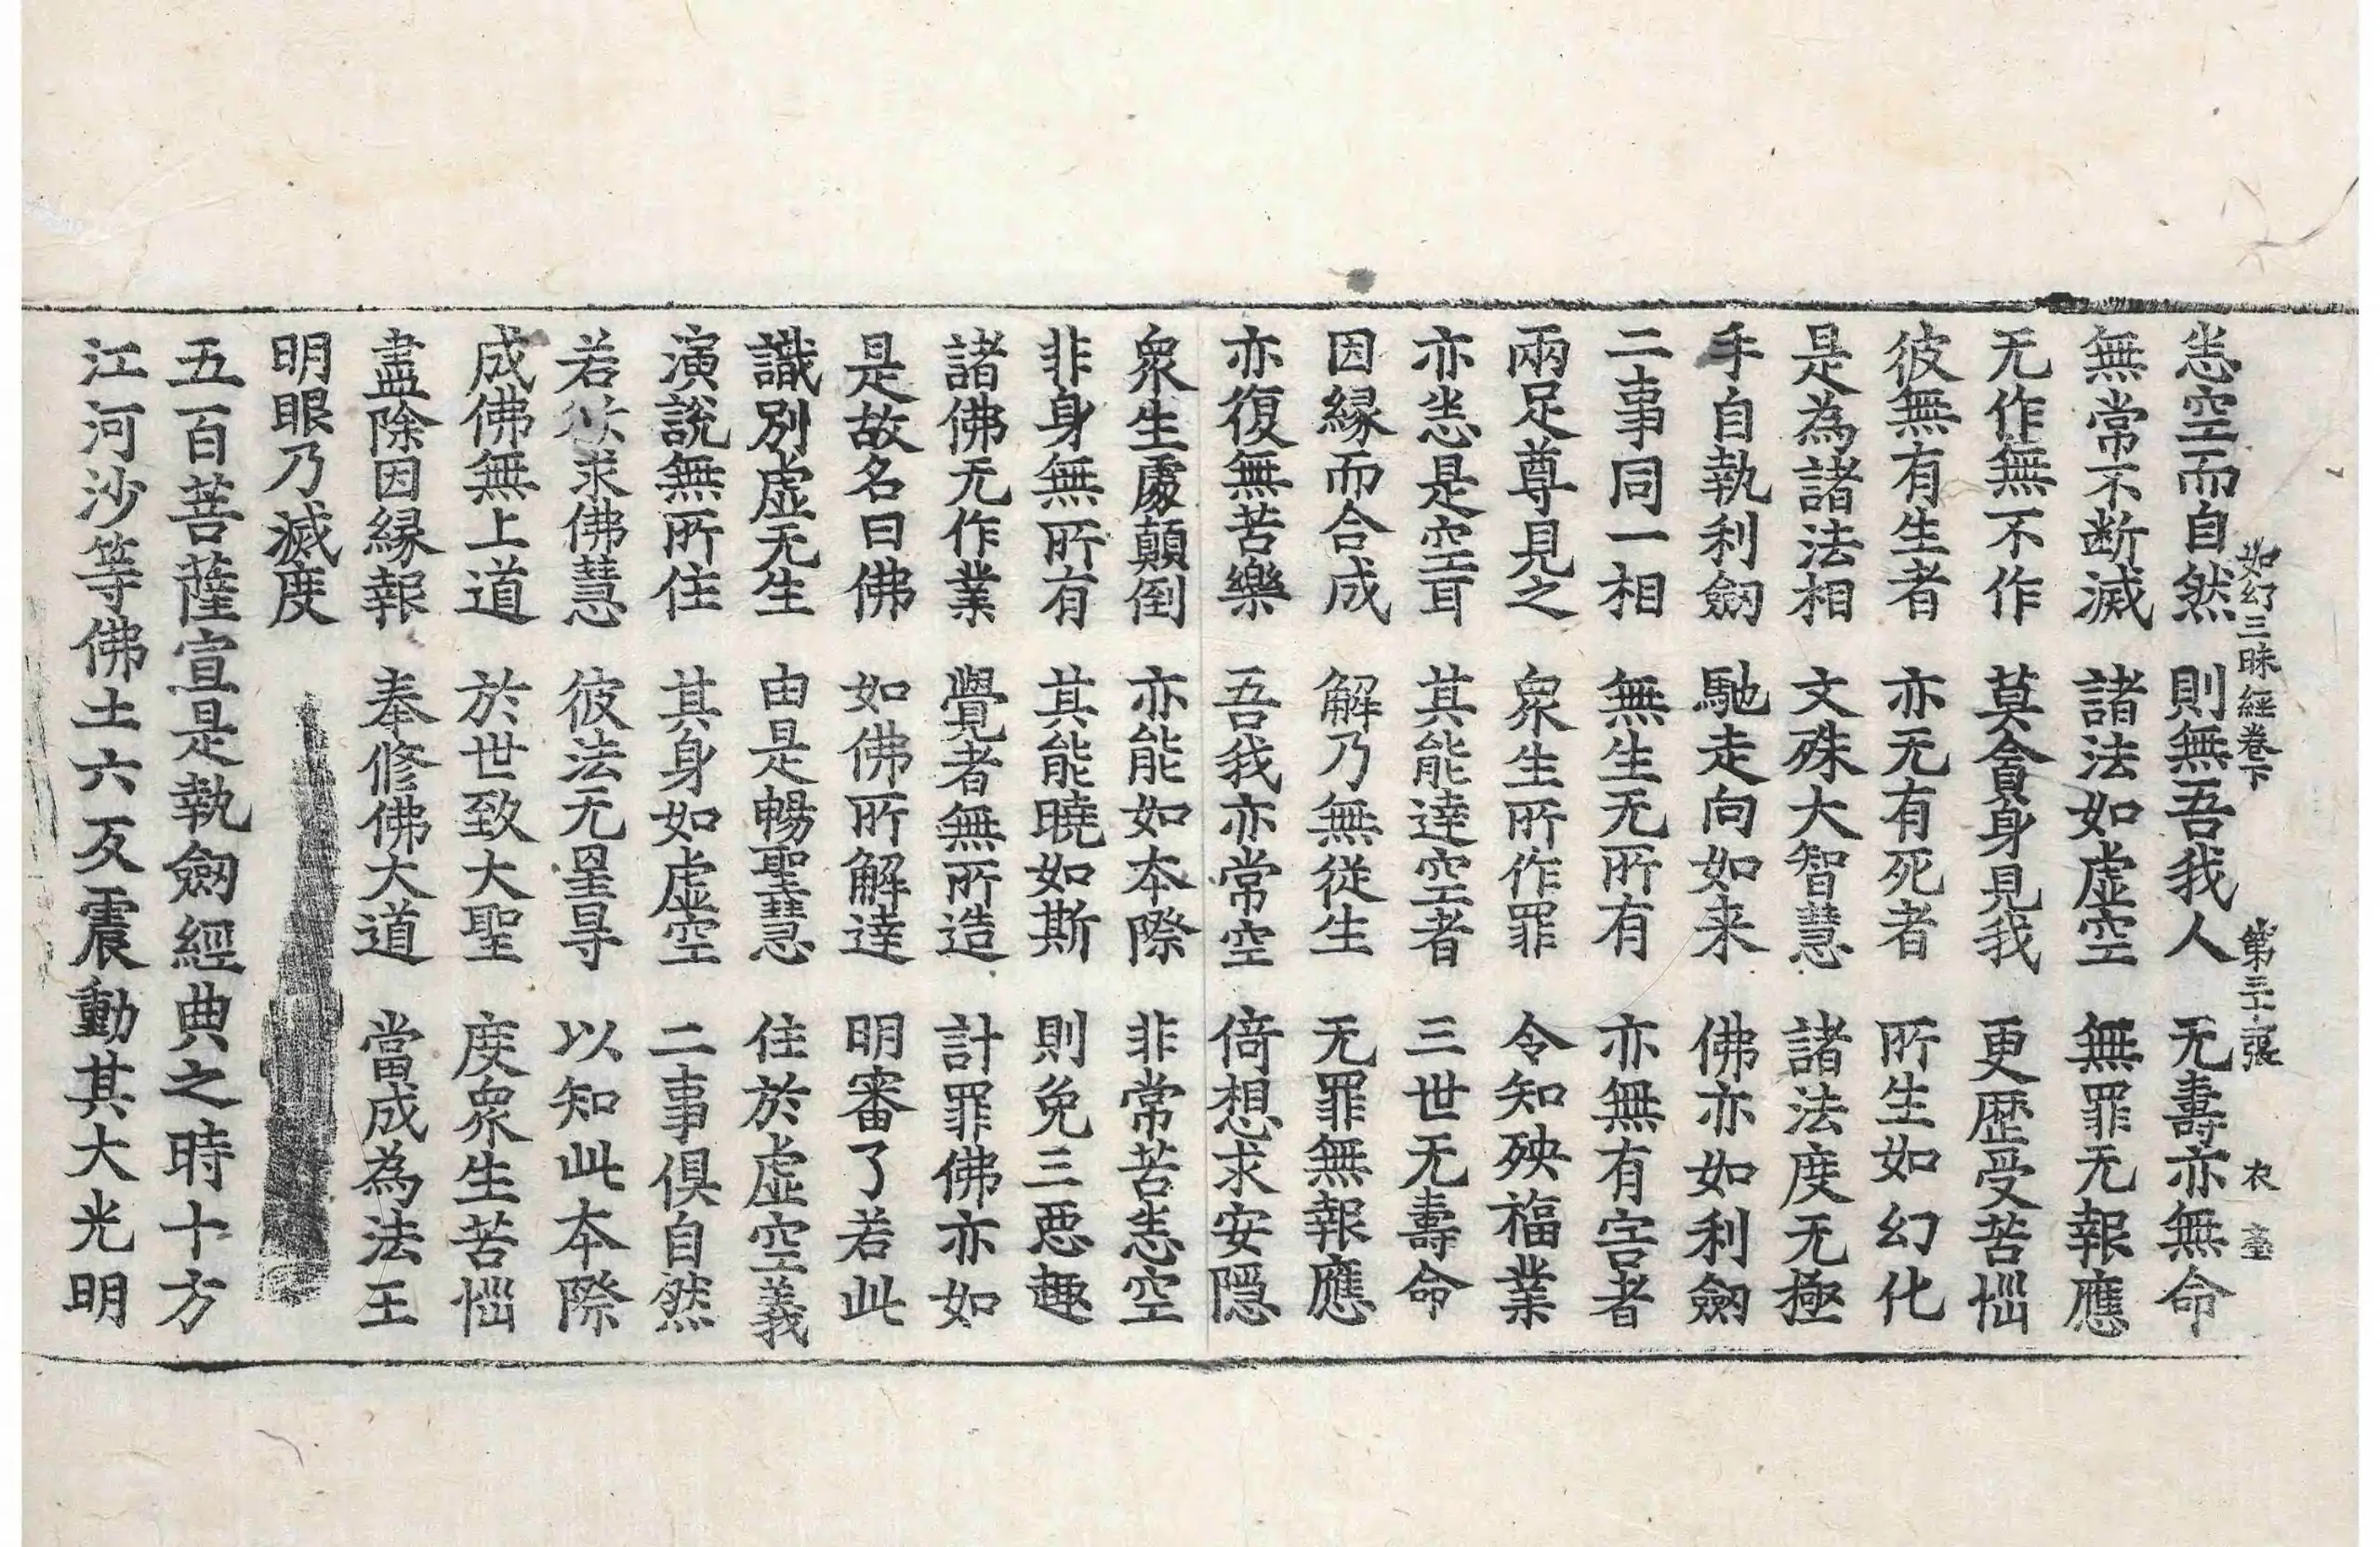 如幻三昧經卷下 第三十張 衣
恙空而自然 則無吾我人 无壽亦無命
無常不断滅 諸法如虛空 無罪无報應
无作無不作 莫貪身見我 更歴受苦惱
彼無有生者 亦无有死者 所生如幻化
是為諸法相 文殊大智慧 諸法度无極
手自執利劒 馳走向如来 佛亦如利劒
二事同一相 無生无所有 亦無有害者
兩足尊見之 衆生所作罪 令知殃福業
亦恙是空耳 其能達空者 三世无壽命
因縁而合成 解乃無從生 无罪無報應
亦復無苦樂 吾我亦常空 倚想求安隱
衆生處顛倒 亦能如本際 非常苦恙空
非身無所有 其能曉如斯 則免三惡趣
諸佛无作業 覺者無所造 計罪佛亦如
是故名曰佛 如佛所解達 明審了若此
識別虛无生 由是暢聖慧 住於虛空義
演說無所住 其身如虛空 二事俱自然
若欲求佛慧 彼法无星导 以知此本際
成佛無上道 於世致大聖 度衆生苦惱
盡除因縁報 奉修佛大道 當成為法王
明眼乃滅度
五百菩薩宣是執劒經典之時十方
江河沙等佛土六反震動其大光明